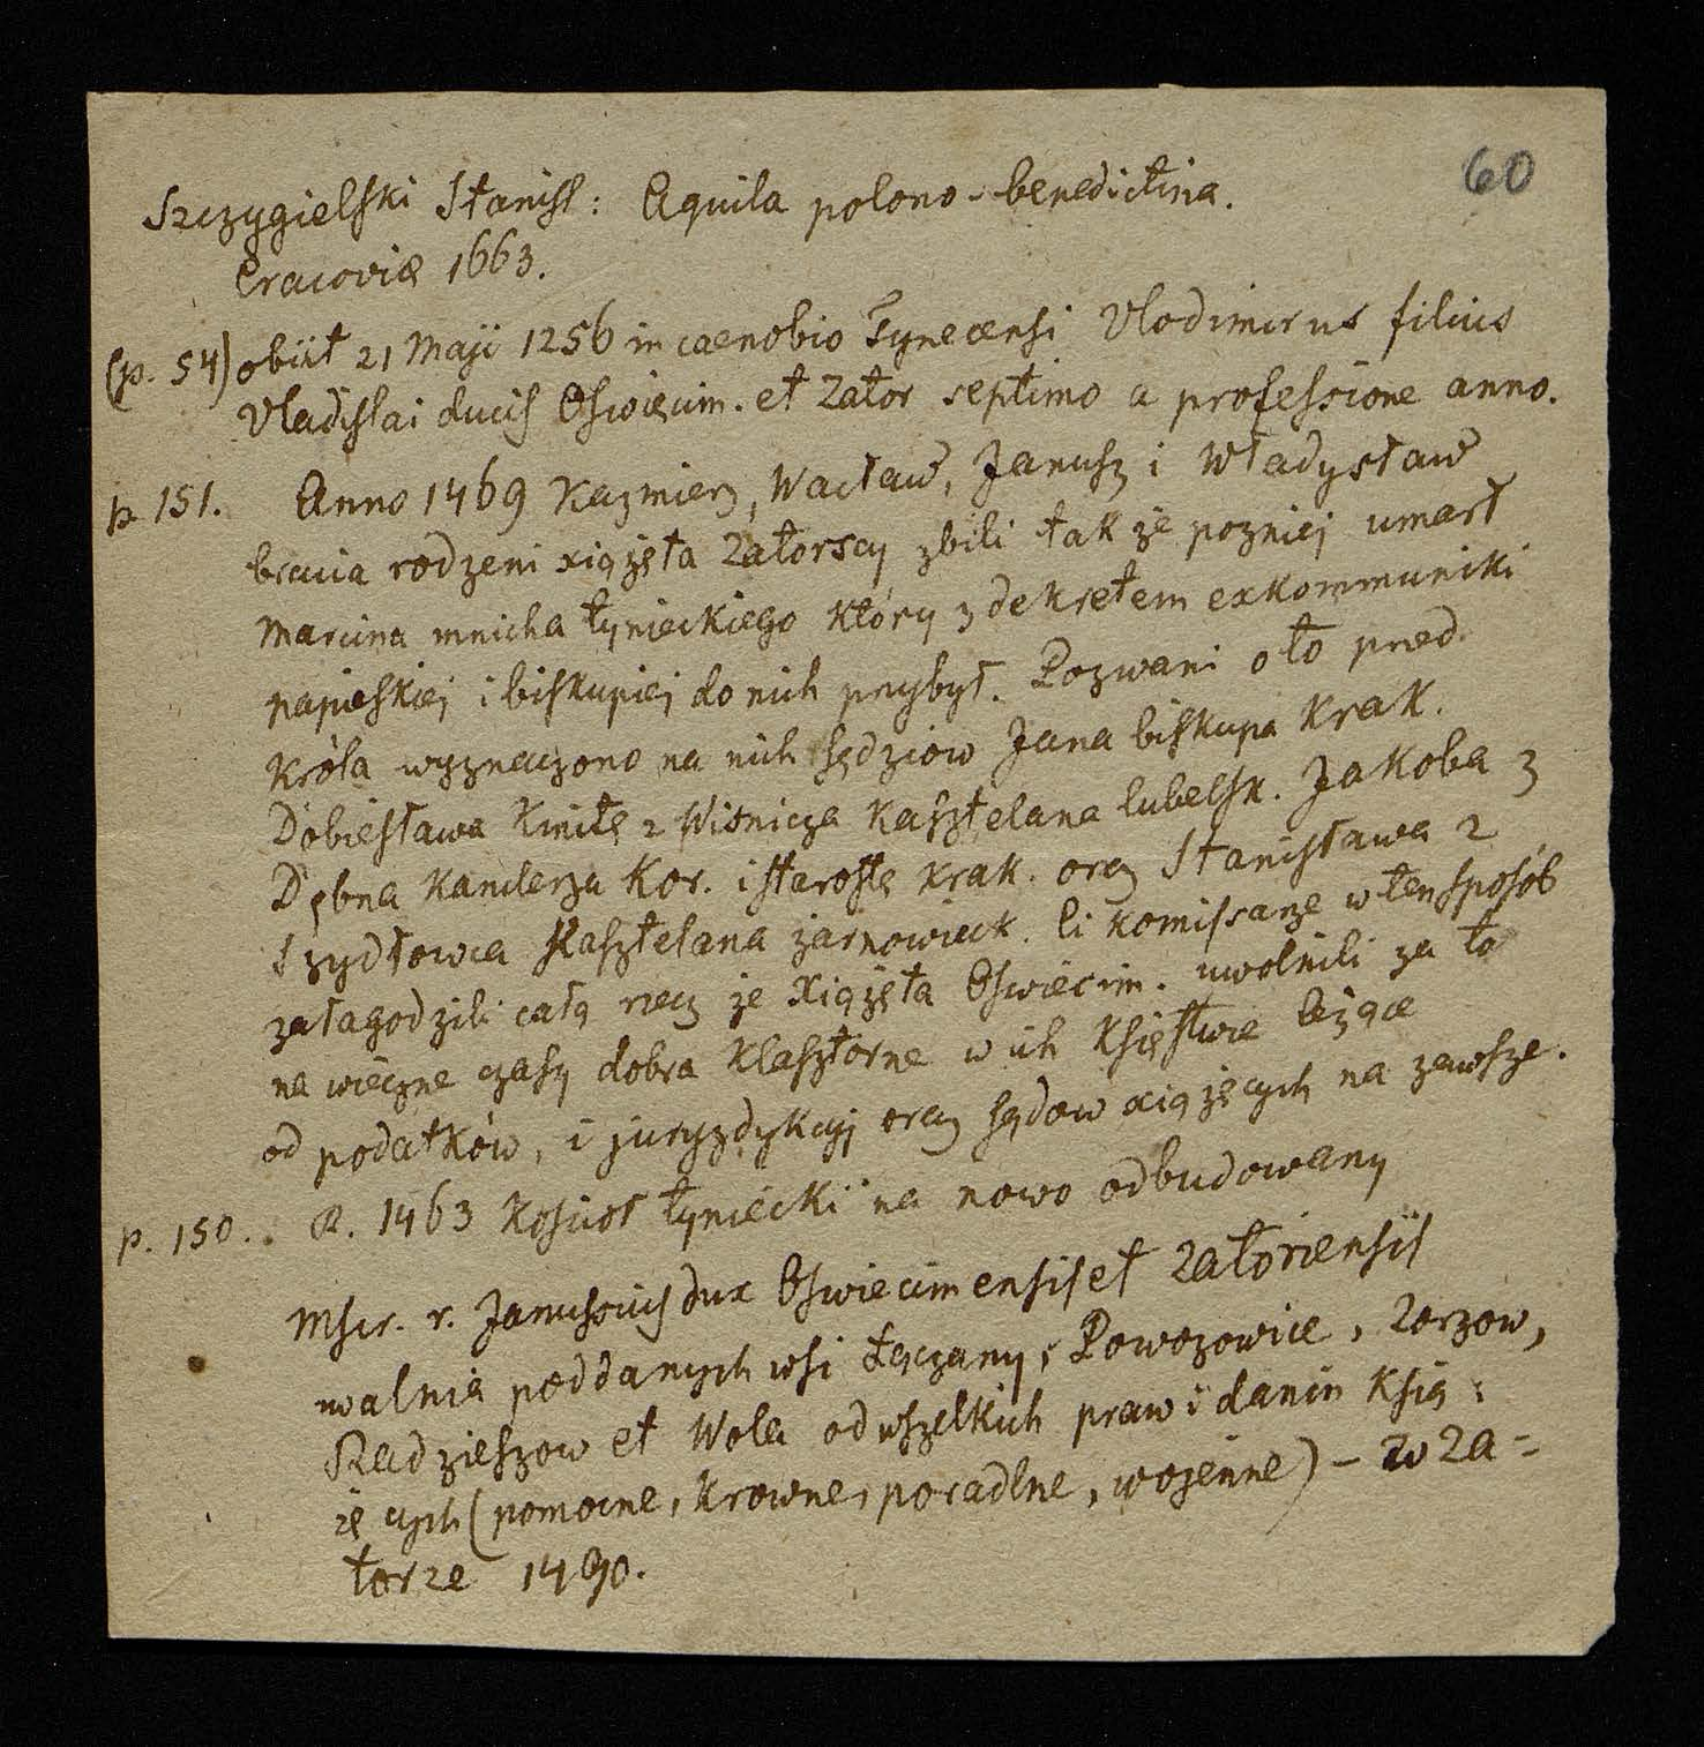 60
Szczygielski Stanisł: Aquila polono-benedictina.
Cracoviæ 1663.
(p. 54) obiit 21 Maji 1256 in caenobio Tynecensi Vlodimirus filius
Vladislai ducis Oswięcim. et Zator septimo a professione anno.
p. 151. Anno 1469 Kazmierz, Wacław, Janusz i Władysław
bracia rodzeni xiążęta Zatorscy zbili tak że pozniej umarł
Marcina mnicha tynieckiego który z dekretem exkommuniki
papieskiej i biskupiej do nich przybył. Pozwani o to przed
Króla wyznaczono na nich sędziow Jana biskupa Krak.
Dobiesława Kmitę z Wisnicza Kasztelana lubelsk. Jakoba z
Dębna Kanclerza Kor. i starostę Krak. oraz Stanisława z
Szydłowca Kasztelana żarnowieck. Ci komissarze w ten sposób
załagodzili całą rzecz że Xiążęta Oswiecim. uwolnili za to
na wieczne czasy dobra Klasztorne w ich Księstwie leżące
od podatków, i juryzdykcyj oraz sądow xiążęcych na zawsze.
p. 150.. R. 1463 Kościoł tyniecki na nowo odbudowany
Mscr. r. Janussius dux Oswiecimensis et Zatoriensis
uwalnia poddanych wsi Łączany, Powozowice, Zorzow,
Radzieszow et Wola od wszelkich praw i danin Ksią:
żę cych (pomocne, krowne, poradlne, wojenne) - w Za=
torze 1490.